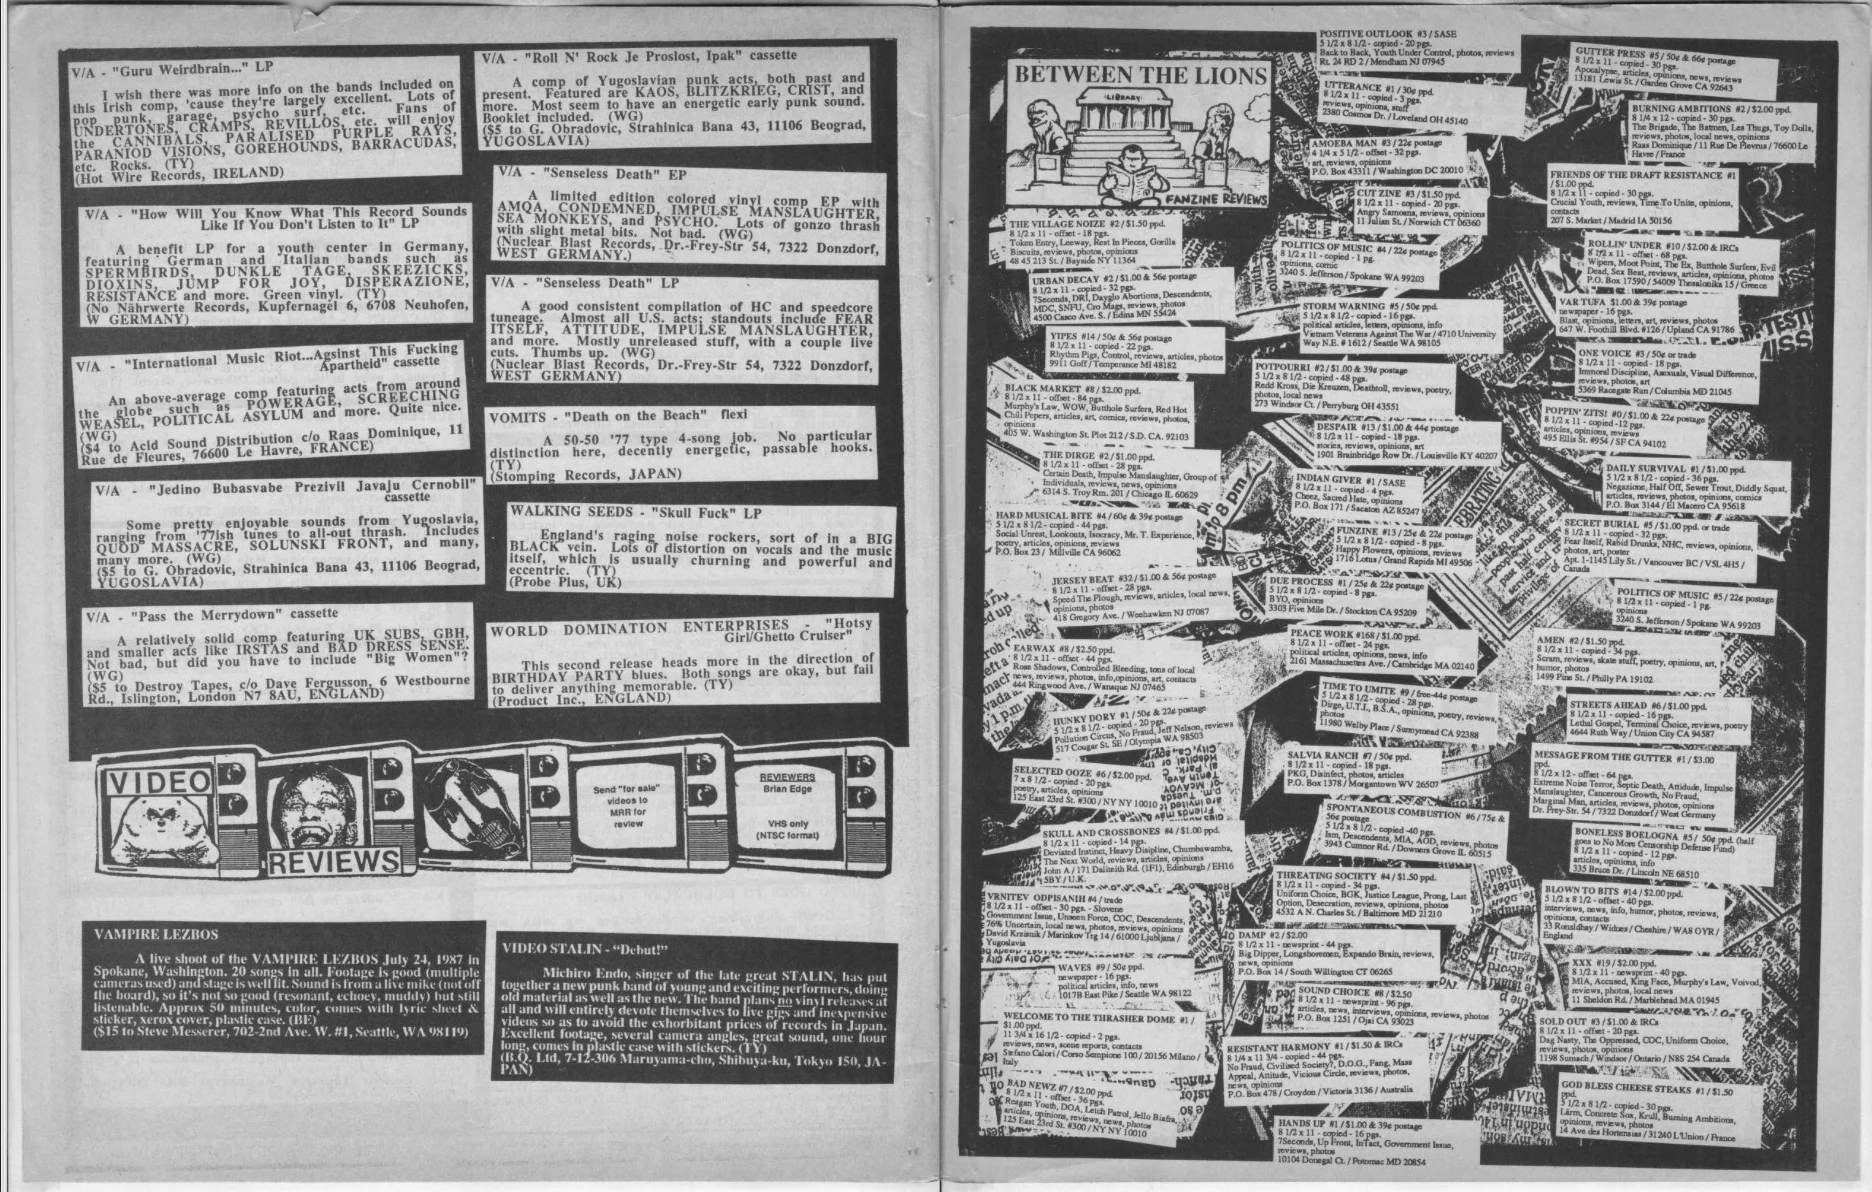 V/A - "Guru Weirdbrain..." LP
I wish there was more info on the bands included on
this Irish comp, 'cause they're largely excellent. Lots of
pop punk, garage, psycho surf, etc. Fans of
UNDERTONES, CRAMPS, REVILLOS, etc. will enjoy
the CANNIBALS, PARALISED PURPLE RAYS,
PARANIOD VISIONS, GOREHOUNDS, BARRACUDAS,
etc. Rocks. (TY)
(Hot Wire Records, IRELAND)
V/A - "How Will You Know What This Record Sounds
Like If You Don't Listen to It" LP
A benefit LP for a youth center in Germany,
featuring German and Italian bands such as
SPERMBIRDS, DUNKLE TAGE, SKEEZICKS,
DIOXINS, JUMP FOR JOY, DISPERAZIONE,
RESISTANCE and more. Green vinyl. (TY)
(No Nährwerte Records, Kupfernagel 6, 6708 Neuhofen,
W GERMANY)
V/A - "International Music Riot...Against This Fucking
Apartheid" cassette
An above-average comp featuring acts from around
the globe such as POWERAGE, SCREECHING
WEASEL, POLITICAL ASYLUM and more. Quite nice.
(WG)
($4 to Acid Sound Distribution c/o Raas Dominique, 11
Rue de Fleures, 76600 Le Havre, FRANCE)
V/A - "Jedino Bubasvabe Prezivil Javaju Cernobil"
cassette
Some pretty enjoyable sounds from Yugoslavia,
ranging from '77ish tunes to all-out thrash. Includes
QUOD MASSACRE, SOLUNSKI FRONT, and many,
many more. (WG)
($5 to G. Obradovic, Strahinica Bana 43, 11106 Beograd,
YUGOSLAVIA)
V/A - "Pass the Merrydown" cassette
A relatively solid comp featuring UK SUBS, GBH,
and smaller acts like IRSTAS and BAD DRESS SENSE.
Not bad, but did you have to include "Big Women"?
(WG)
($5 to Destroy Tapes, c/o Dave Fergusson, 6 Westbourne
Rd., Islington, London N7 8AU, ENGLAND)
V/A - "Roll N' Rock Je Proslost, Ipak" cassette
A comp of Yugoslavian punk acts, both past and
present. Featured are KAOS, BLITZKRIEG, CRIST, and
more. Most seem to have an energetic early punk sound.
Booklet included. (WG)
($5 to G. Obradovic, Strahinica Bana 43, 11106 Beograd,
YUGOSLAVIA)
V/A - "Senseless Death" EP
A limited edition colored vinyl comp EP with
AMQA, CONDEMNED, IMPULSE MANSLAUGHTER,
SEA MONKEYS, and PSYCHO. Lots of gonzo thrash
with slight metal bits. Not bad. (WG)
(Nuclear Blast Records, Dr.-Frey-Str 54, 7322 Donzdorf,
WEST GERMANY.)
V/A - "Senseless Death" LP
A good consistent compilation of HC and speedcore
tuneage. Almost all U.S. acts; standouts include FEAR
ITSELF, ATTITUDE, IMPULSE MANSLAUGHTER,
and more. Mostly unreleased stuff, with a couple live
cuts. Thumbs up. (WG)
(Nuclear Blast Records, Dr.-Frey-Str 54, 7322 Donzdorf,
WEST GERMANY)
VOMITS - "Death on the Beach" flexi
A 50-50 '77 type 4-song job. No particular
distinction here, decently energetic, passable hooks.
(TY)
(Stomping Records, JAPAN)
WALKING SEEDS - "Skull Fuck" LP
England's raging noise rockers, sort of in a BIG
BLACK vein. Lots of distortion on vocals and the music
itself, which is usually churning and powerful and
eccentric. (TY)
(Probe Plus, UK)
WORLD DOMINATION ENTERPRISES - "Hotsy
Girl/Ghetto Cruiser"
This second release heads more in the direction of
BIRTHDAY PARTY blues. Both songs are okay, but fail
to deliver anything memorable. (TY)
(Product Inc., ENGLAND)
VIDEO
REVIEWS
Send "for sale"
videos to
MRR for
review
REVIEWERS
Brian Edge
VHS only
(NTSC format)
VAMPIRE LEZBOS
A live shoot of the VAMPIRE LEZBOS July 24, 1987 in
Spokane, Washington. 20 songs in all. Footage is good (multiple
cameras used) and stage is well lit. Sound is from a live mike (not off
the board), so it's not so good (resonant, echoey, muddy) but still
listenable. Approx 50 minutes, color, comes with lyric sheet &
sticker, xerox cover, plastic case. (BE)
($15 to Steve Messerer, 702-2nd Ave. W. #1, Seattle, WA 98119)
VIDEO STALIN - "Debut!"
Michiro Endo, singer of the late great STALIN, has put
together a new punk band of young and exciting performers, doing
old material as well as the new. The band plans no vinyl releases at
all and will entirely devote themselves to live gigs and inexpensive
videos so as to avoid the exhorbitant prices of records in Japan.
Excellent footage, several camera angles, great sound, one hour
long, comes in plastic case with stickers. (TY)
(B.Q. Ltd, 7-12-306 Maruyama-cho, Shibuya-ku, Tokyo 150, JA-
PAN)
BETWEEN THE LIONS
LIBRARY
FANZINE REVIEWS
THE VILLAGE NOIZE #2 / $1.50 ppd.
8 1/2 x 11 - offset - 18 pgs.
Token Entry, Leeway, Rest In Pieces, Gorilla
Biscuits, reviews, photos, opinions
48 45 213 St. / Bayside NY 11364
URBAN DECAY #2 / $1.00 & 56¢ postage
8 1/2 x 11 - copied - 32 pgs.
7Seconds, DRI, Dayglo Abortions, Descendents,
MDC, SNFU, Cro Mags, reviews, photos
4500 Casco Ave. S. / Edina MN 55424
YIPES #14 / 50¢ & 56¢ postage
8 1/2 x 11 - copied - 22 pgs.
Rhythm Pigs, Control, reviews, articles, photos
9911 Goff / Temperance MI 48182
BLACK MARKET #8 / $2.00
8 1/2 x 11 - offset - 84 pgs.
Murphy's Law, WOW, Butthole Surfers, Red Hot
Chili Pepers, articles, art, comics, reviews, photos,
opinions
405 W. Washington St. Plot 212 / S.D. CA. 92103
THE DIRGE #2 / $1.00 ppd.
8 1/2 x 11 - offset - 28 pgs.
Certain Death, Impulse Manslaughter, Group of
Individuals, reviews, news, opinions
6314 S. Troy Rm. 201 / Chicago IL 60629
HARD MUSICAL BITE #4 / 60¢ & 39¢ postage
5 1/2 x 8 1/2 - copied - 44 pgs.
Social Unrest, Lookouts, Isocracy, Mr. T. Experience,
poetry, articles, opinions, reviews
P.O. Box 23 / Millville CA 96062
JERSEY BEAT #32 / $1.00 & 56¢ postage
8 1/2 x 11 - offset - 28 pgs.
Speed The Plough, reviews, articles, local news,
opinions, photos
418 Gregory Ave. / Weehawken NJ 07087
EARWAX #8 / $2.50 ppd.
8 1/2 x 11 - offset - 44 pgs.
Rose Shadows, Controlled Bleeding, tons of local
news, reviews, photos, info, opinions, art, contacts
444 Ringwood Ave. / Wanaque NJ 07465
HUNKY DORY #1 / 50¢ & 22¢ postage
5 1/2 x 8 1/2 - copied - 20 pgs.
Pollution Circus, No Fraud, Jeff Nelson, reviews
517 Cougar St. SE / Olympia WA 98503
SELECTED OOZE #6 / $2.00 ppd.
7 x 8 1/2 - copied - 20 pgs.
poetry, articles, opinions
125 East 23rd St. #300 / NY NY 10010
SKULL AND CROSSBONES #4 / $1.00 ppd.
8 1/2 x 11 - copied - 14 pgs.
Deviated Instinct, Heavy Disipline, Chumbawamba,
The Next World, reviews, articles, opinions
John A / 171 Dalinith Rd. (1F1), Edinburgh / EH16
5BY / U.K.
VRNITEV ODPISANIH #4 / trade
8 1/2 x 11 - offset - 30 pgs. - Slovene
Government Issue, Unseen Force, COC, Descendents,
76% Uncertain, local news, photos, reviews, opinions
David Krzisnik / Marinkov Trg 14 / 61000 Ljubljana /
Yugoslavia
WAVES #9 / 50¢ ppd.
newspaper - 16 pgs.
political articles, info, news
1017B East Pike / Seattle WA 98122
WELCOME TO THE THRASHER DOME #1 /
$1.00 ppd.
11 3/4 x 16 1/2 - copied - 2 pgs.
reviews, news, scene reports, contacts
Stefano Calori / Corso Sempione 100 / 20156 Milano /
Italy
BAD NEWZ #7 / $2.00 ppd.
8 1/2 x 11 - offset - 36 pgs.
Reagan Youth, DOA, Letch Patrol, Jello Biafra,
articles, opinions, reviews, news, photos
125 East 23rd St. #300 / NY NY 10010
POSITIVE OUTLOOK #3 / SASE
5 1/2 x 8 1/2 - copied - 20 pgs.
Back to Back, Youth Under Control, photos, reviews
Rt. 24 RD 2 / Mendham NJ 07945
UTTERANCE #1 / 30¢ ppd.
8 1/2 x 11 - copied - 3 pgs.
reviews, opinions, stuff
2380 Cosmos Dr. / Loveland OH 45140
AMOEBA MAN #3 / 22¢ postage
4 1/4 x 5 1/2 - offset - 32 pgs.
art, reviews, opinions
P.O. Box 43311 / Washington DC 20010
CUT ZINE #3 / $1.50 ppd.
8 1/2 x 11 - copied - 20 pgs.
Angry Samoans, reviews, opinions
11 Julian St. / Norwich CT 06360
POLITICS OF MUSIC #4 / 22¢ postage
8 1/2 x 11 - copied - 1 pg.
opinions, comic
3240 S. Jefferson / Spokane WA 99203
STORM WARNING #5 / 50¢ ppd.
5 1/2 x 8 1/2 - copied - 16 pgs.
political articles, letters, opinions, info
Vietnam Veterans Against The War / 4710 University
Way N.E. #1612 / Seattle WA 98105
POTPOURRI #2 / $1.00 & 39¢ postage
5 1/2 x 8 1/2 - copied - 48 pgs.
Redd Kross, Die Kreuzen, Deathtoll, reviews, poetry,
photos, local news
273 Windsor Ct. / Perryburg OH 43551
DESPAIR #13 / $1.00 & 44¢ postage
5 1/2 x 8 1/2 - copied - 18 pgs.
stories, reviews, opinions, art
1901 Brainbridge Row Dr. / Louisville KY 40207
INDIAN GIVER #1 / SASE
8 1/2 x 11 - copied - 4 pgs.
Cheez, Sacred Hate, opinions
P.O. Box 171 / Sacaton AZ 85247
FUNZINE #13 / 25¢ & 22¢ postage
5 1/2 x 8 1/2 - copied - 8 pgs.
Happy Flowers, opinions, reviews
1716 Lotus / Grand Rapids MI 49506
DUE PROCESS #1 / 25¢ & 22¢ postage
5 1/2 x 8 1/2 - copied - 8 pgs.
BYO, opinions
3303 Five Mile Dr. / Stockton CA 95209
PEACE WORK #168 / $1.00 ppd.
8 1/2 x 11 - offset - 24 pgs.
political articles, opinions, news, info
2161 Massachusettes Ave. / Cambridge MA 02140
TIME TO UMITE #9 / free-44¢ postage
5 1/2 x 8 1/2 - copied - 28 pgs.
Dirge, U.T.I., B.S.A., opinions, poetry, reviews,
photos
11980 Welby Place / Sunnymead CA 92388
SALVIA RANCH #7 / 50¢ ppd.
8 1/2 x 11 - copied - 18 pgs.
PKG, Disinfect, photos, articles
P.O. Box 1378 / Morgantown WV 26507
SPONTANEOUS COMBUSTION #6 / 75¢ &
56¢ postage
5 1/2 x 8 1/2 - copied -40 pgs.
Ism, Descendents, MIA, AOD, reviews, photos
3943 Cumnor Rd. / Downers Grove IL 60515
THREATING SOCIETY #4 / $1.50 ppd.
8 1/2 x 11 - copied - 34 pgs.
Uniform Choice, BGK, Justice League, Prong, Last
Option, Desecration, reviews, opinions, photos
4532 A N. Charles St. / Baltimore MD 21210
DAMP #2 / $2.00
8 1/2 x 11 - newsprint - 44 pgs.
Big Dipper, Longshoremen, Expando Brain, reviews,
news, opinions
P.O. Box 14 / South Willington CT 06265
SOUND CHOICE #8 / $2.50
8 1/2 x 11 - newsprint - 96 pgs.
articles, news, interviews, opinions, reviews, photos
P.O. Box 1251 / Ojai CA 93023
RESISTANT HARMONY #1 / $1.50 & IRCs
8 1/4 x 11 3/4 - copied - 44 pgs.
No Fraud, Civilised Society?, D.O.G., Fang, Mass
Appeal, Attitude, Vicious Circle, reviews, photos,
news, opinions
P.O. Box 478 / Croydon / Victoria 3136 / Australia
HANDS UP #1 / $1.00 & 39¢ postage
8 1/2 x 11 - copied - 16 pgs.
7Seconds, Up Front, InTact, Government Issue,
reviews, photos
10104 Donegal Ct. / Potomac MD 20854
GUTTER PRESS #5 / 50¢ & 66¢ postage
8 1/2 x 11 - copied - 30 pgs.
Apocalypse, articles, opinions, news, reviews
13181 Lewis St. / Garden Grove CA 92643
BURNING AMBITIONS #2 / $2.00 ppd.
8 1/4 x 12 - copied - 30 pgs.
The Brigade, The Batmen, Les Thugs, Toy Dolls,
reviews, photos, local news, opinions
Raas Dominique / 11 Rue De Flevrus / 76600 Le
Havre / France
FRIENDS OF THE DRAFT RESISTANCE #1
/ $1.00 ppd.
8 1/2 x 11 - copied - 30 pgs.
Crucial Youth, reviews, Time To Unite, opinions,
contacts
207 S. Market / Madrid IA 50156
ROLLIN' UNDER #10 / $2.00 & IRCs
8 1/2 x 11 - offset - 68 pgs.
Wipers, Moot Point, The Ex, Butthole Surfers, Evil
Dead, Sex Beat, reviews, articles, opinions, photos
P.O. Box 17590 / 54009 Thessalonika 15 / Greece
VAR TUFA $1.00 & 39¢ postage
newspaper - 16 pgs.
Blast, opinions, letters, art, reviews, photos
647 W. Foothill Blvd. #126 / Upland CA 91786
ONE VOICE #3 / 50¢ or trade
8 1/2 x 11 - copied - 18 pgs.
Immoral Discipline, Asexuals, Visual Difference,
reviews, photos, art
5369 Racegate Run / Columbia MD 21045
POPPIN' ZITS! #0 / $1.00 & 22¢ postage
8 1/2 x 11 - copied -12 pgs.
articles, opinions, reviews
495 Ellis St. #954 / SF CA 94102
DAILY SURVIVAL #1 / $1.00 ppd.
5 1/2 x 8 1/2 - copied - 36 pgs.
Negazione, Half Off, Sewer Trout, Diddly Squat,
articles, reviews, photos, opinions, comics
P.O. Box 3144 / El Macero CA 95618
SECRET BURIAL #5 / $1.00 ppd. or trade
8 1/2 x 11 - copied - 32 pgs.
Fear Itself, Rabid Drunks, NHC, reviews, opinions,
photos, art, poster
Apt. 1-1145 Lily St. / Vancouver BC / V5L 4H5 /
Canada
POLITICS OF MUSIC #5 / 22¢ postage
8 1/2 x 11 - copied - 1 pg.
opinions
3240 S. Jefferson / Spokane WA 99203
AMEN #2 / $1.50 ppd.
8 1/2 x 11 - copied - 34 pgs.
Scram, reviews, skate stuff, poetry, opinions, art,
humor, photos
1499 Pine St. / Philly PA 19102
STREETS AHEAD #6 / $1.00
8 1/2 x 11 - copied - 16 pgs.
Lethal Gospel, Terminal Choice, reviews, poetry
4644 Ruth Way / Union City CA 94587
MESSAGE FROM THE GUTTER #1 / $3.00
ppd.
8 1/2 x 12 - offset - 64 pgs.
Extreme Noise Terror, Septic Death, Attitude, Impulse
Manslaughter, Cancerous Growth, No Fraud,
Marginal Man, articles, reviews, photos, opinions
Dr. Frey-Str. 54 / 7322 Donzdorf / West Germany
BONELESS BOELOGNA #5 / 50¢ ppd. (half
goes to No More Censorship Defense Fund)
8 1/2 x 11 - copied - 12 pgs.
articles, opinions, info
335 Bruce Dr. / Lincoln NE 68510
BLOWN TO BITS #14 / $2.00 ppd.
5 1/2 x 8 1/2 - offset - 40 pgs.
interviews, news, info, humor, photos, reviews,
opinions, contacts
33 Ronaldhay / Widnes / Cheshire / WA8 OYR /
England
XXX #19 / $2.00 ppd.
8 1/2 x 11 - newsprint - 40 pgs.
MIA, Accused, King Face, Murphy's Law, Voivod,
reviews, photos, local news
11 Sheldon Rd. / Marblehead MA 01945
SOLD OUT #3 / $1.00 & IRCs
5 1/2 x 8 1/2 - offset - 20 pgs.
Dag Nasty, The Oppressed, COC, Uniform Choice,
reviews, photos, opinions
1198 Sumach / Windsor / Ontario / N8S 254 Canada
GOD BLESS CHEESE STEAKS #1 / $1.50
ppd.
5 1/2 x 8 1/2 - copied - 30 pgs.
Lärm, Concrete Sox, Krull, Burning Ambitions,
opinions, reviews, photos
14 Ave des Hortensias / 31240 L'Union / France